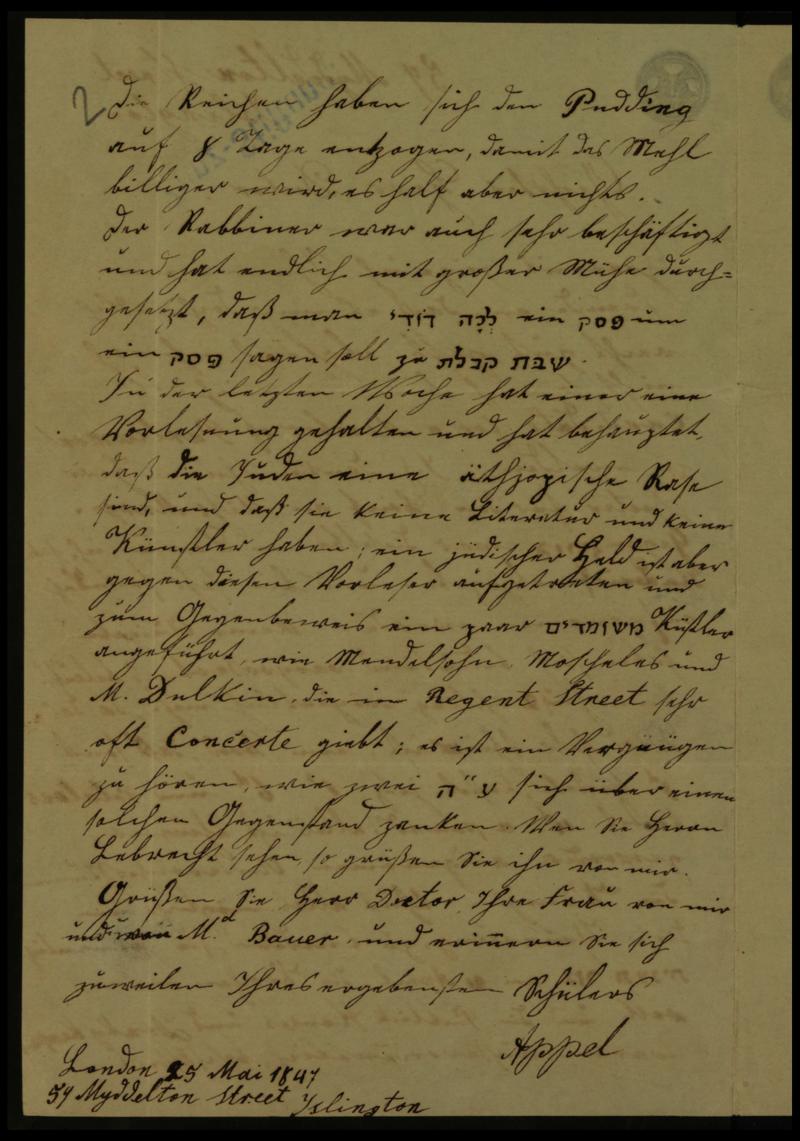 2
Die Reichen haben sich den Pudding
auf 8 Tage entzogen, damit das Mehl
billiger wird, es half aber nichts.
Der Rabbiner war auch sehr beschäftigt
und hat endlich mit großer Mühe durch=
gesetzt, daß man לְכָה דוֹדִי ein פסק um
ein פסק sagen soll zu שבת קבלת.
In der letzten Woche hat einer eine
Vorlesung gehalten und hat behauptet,
daß die Juden eine äthjopische Rase
sind, und daß sie keine Literatur und keine
Künstler haben; ein jüdischer Held ist aber
gegen diesen Vorleser aufgetreten und
zum Gegenbeweis ein paar משומדים Küstler
angeführt, wie Mendelsohn, Moscheles und
M. Dulkin, die in Regent Street sehr
oft Concerte giebt; es ist ein Vergnügen
zu hören, wie zwei ע"ה sich über einen
solchen Gegenstand zanken. Wen Sie Herrn
Lebrecht sehen, so grüßen Sie ihn von mir.
Grüßen Sie Herr Doctor, Ihre Frau von mir
und M.d Bauer, und erinnern Sie sich
zuweilen Ihres ergebensten Schülers
Appel
London 25 Mai 1847
59 Myddelton Street Islington